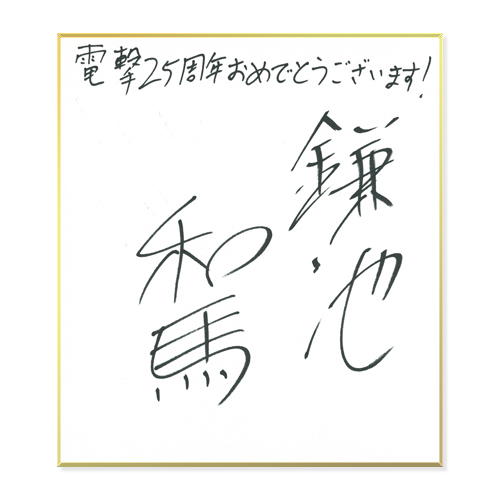 電撃25周年おめでとうございます!
鎌池
和馬